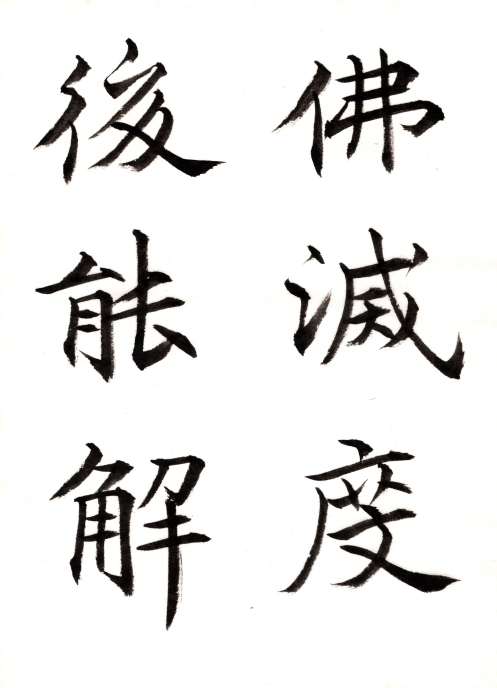 佛滅度
後能解